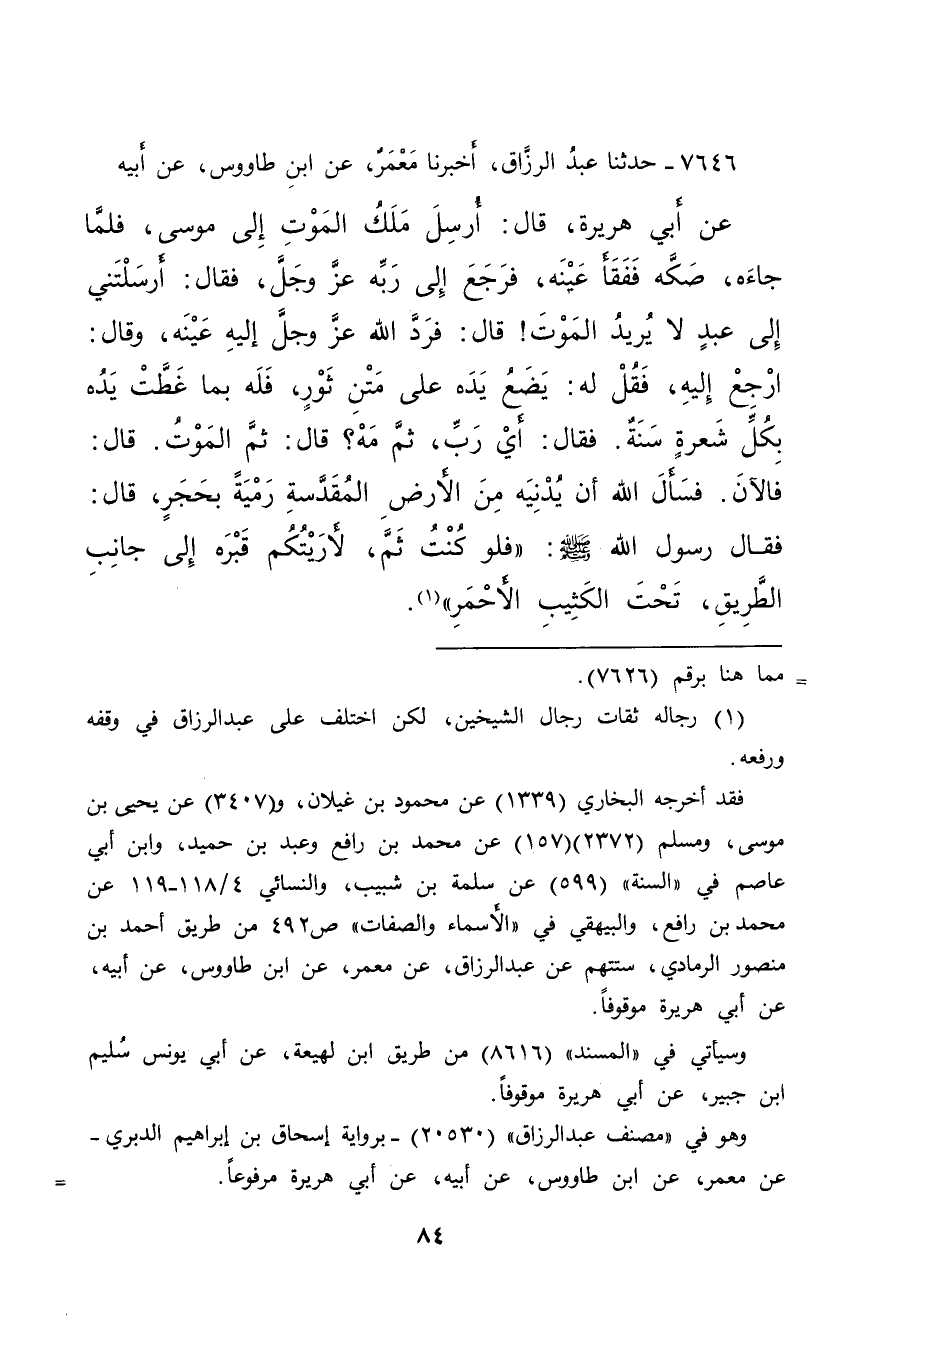 ٧٦٤٦ - حدثنا عبدُ الرزَّاق، أَخبرنا مَعْمَرٌ، عن ابنِ طاووس، عن أَبيه
عن أَبي هريرة، قال: أُرسِلَ مَلَكُ المَوْتِ إِلى موسى، فلمَّا
جاءَه، صَكَّه فَفَقَأَ عَيْنَه، فرَجَعَ إِلى رَبِّه عزَّ وجَلَّ، فقال: أَرسَلْتَني
إِلى عبدٍ لا يُريدُ المَوْتَ! قال: فرَدَّ الله عزَّ وجلَّ إليهِ عَيْنَه، وقال:
ارْجِعْ إِليهِ، فَقُلْ له: يَضَعُ يَدَه على مَتْنِ ثَوْرٍ، فَلَه بما غَطَّتْ يَدُه
بِكُلِّ شَعرةٍ سَنَةٌ. فقال: أَيْ رَبِّ، ثمَّ مَهْ؟ قال: ثمَّ المَوْتُ. قال:
فالآنَ. فسَأَلَ الله أن يُدْنِيَه مِنَ الأَرضِ المُقَدَّسةِ رَمْيَةً بحَجَرٍ، قال:
فقـال رسول الله ﷺ: «فلو كُنْتُ ثَمَّ، لأَرَيْتُكُم قَبْرَه إلى جانِبِ
الطَّرِيقِ، تَحْتَ الكَثِيبِ الأَحْمَرِ»(١).
= مما هنا برقم (٧٦٢٦).
(١) رجاله ثقات رجال الشيخين، لكن اختلف على عبدالرزاق في وقفه
ورفعه.
فقد أخرجه البخاري (١٣٣٩) عن محمود بن غيلان، و(٣٤٠٧) عن يحيى بن
موسى، ومسلم (٢٣٧٢)(١٥٧) عن محمد بن رافع وعبد بن حميد، وابن أبي
عاصم في «السنة» (٥٩٩) عن سلمة بن شبيب، والنسائي ٤/١١٨-١١٩ عن
محمد بن رافع، والبيهقي في «الأَسماء والصفات» ص٤٩٢ من طريق أحمد بن
منصور الرمادي، ستتهم عن عبدالرزاق، عن معمر، عن ابن طاووس، عن أبيه،
عن أبي هريرة موقوفاً.
وسيأتي في «المسند» (٨٦١٦) من طريق ابن لهيعة، عن أبي يونس سُليم
ابن جبير، عن أبي هريرة موقوفاً.
وهو في «مصنف عبدالرزاق» (٢٠٥٣٠) - برواية إسحاق بن إبراهيم الدبري -
عن معمر، عن ابن طاووس، عن أبيه، عن أبي هريرة مرفوعاً. =
٨٤